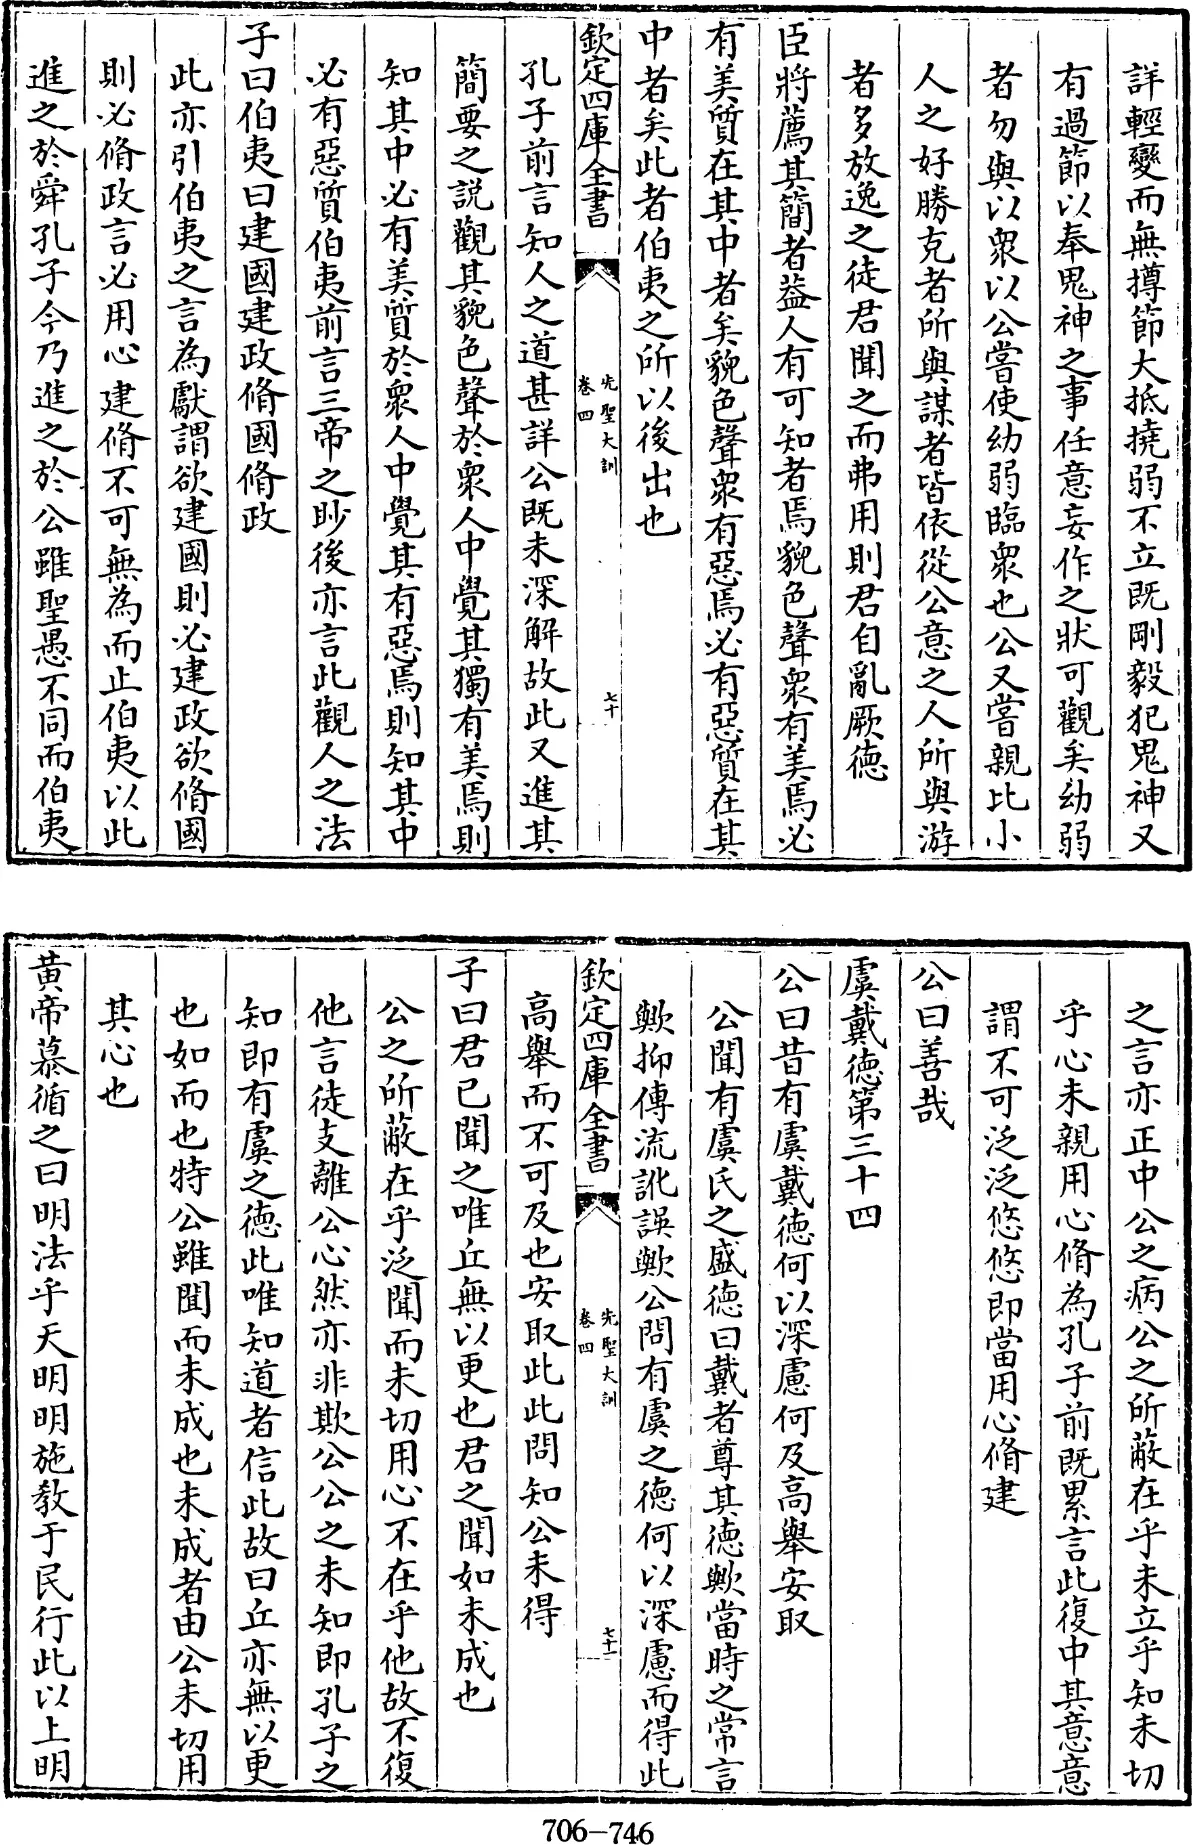 詳輕變而無撙節大抵撓弱不立既剛毅犯鬼神又
有過節以奉鬼神之事任意妄作之狀可觀矣幼弱
者勿與以衆以公嘗使幼弱臨衆也公又嘗親比小
人之好勝克者所與謀者皆依從公意之人所與游
者多放逸之徒君聞之而弗用則君自亂厥德
臣將薦其簡者益人有可知者焉貌色聲衆有美焉必
有美質在其中者矣貌色聲衆有惡焉必有惡質在其
中者矣此者伯夷之所以後出也
欽定四庫全書
先聖大訓
卷四
七十
孔子前言知人之道甚詳公既未深解故此又進其
簡要之説觀其貌色聲於衆人中覺其獨有美焉則
知其中必有美質於衆人中覺其有惡焉則知其中
必有惡質伯夷前言三帝之眇後亦言此觀人之法
子曰伯夷曰建國建政脩國脩政
此亦引伯夷之言為獻謂欲建國則必建政欲脩國
則必脩政言必用心建脩不可無為而止伯夷以此
進之於舜孔子今乃進之於公雖聖愚不同而伯夷
之言亦正中公之病公之所蔽在乎未立乎知未切
乎心未親用心脩為孔子前既累言此復中其意意
謂不可泛泛悠悠即當用心脩建
公曰善哉
虞戴徳第三十四
公曰昔有虞戴徳何以深慮何及高舉安取
公聞有虞氏之盛徳曰戴者尊其徳歟當時之常言
歟抑傳流訛誤歟公問有虞之徳何以深慮而得此
欽定四庫全書
先聖大訓
卷四
七十一
高舉而不可及也安取此此問知公未得
子曰君已聞之唯丘無以更也君之聞如未成也
公之所蔽在乎泛聞而未切用心不在乎他故不復
他言徒支離公心然亦非欺公公之未知即孔子之
知即有虞之徳此唯知道者信此故曰丘亦無以更
也如而也特公雖聞而未成也未成者由公未切用
其心也
黄帝慕循之曰明法乎天明明施教于民行此以上明
706-746